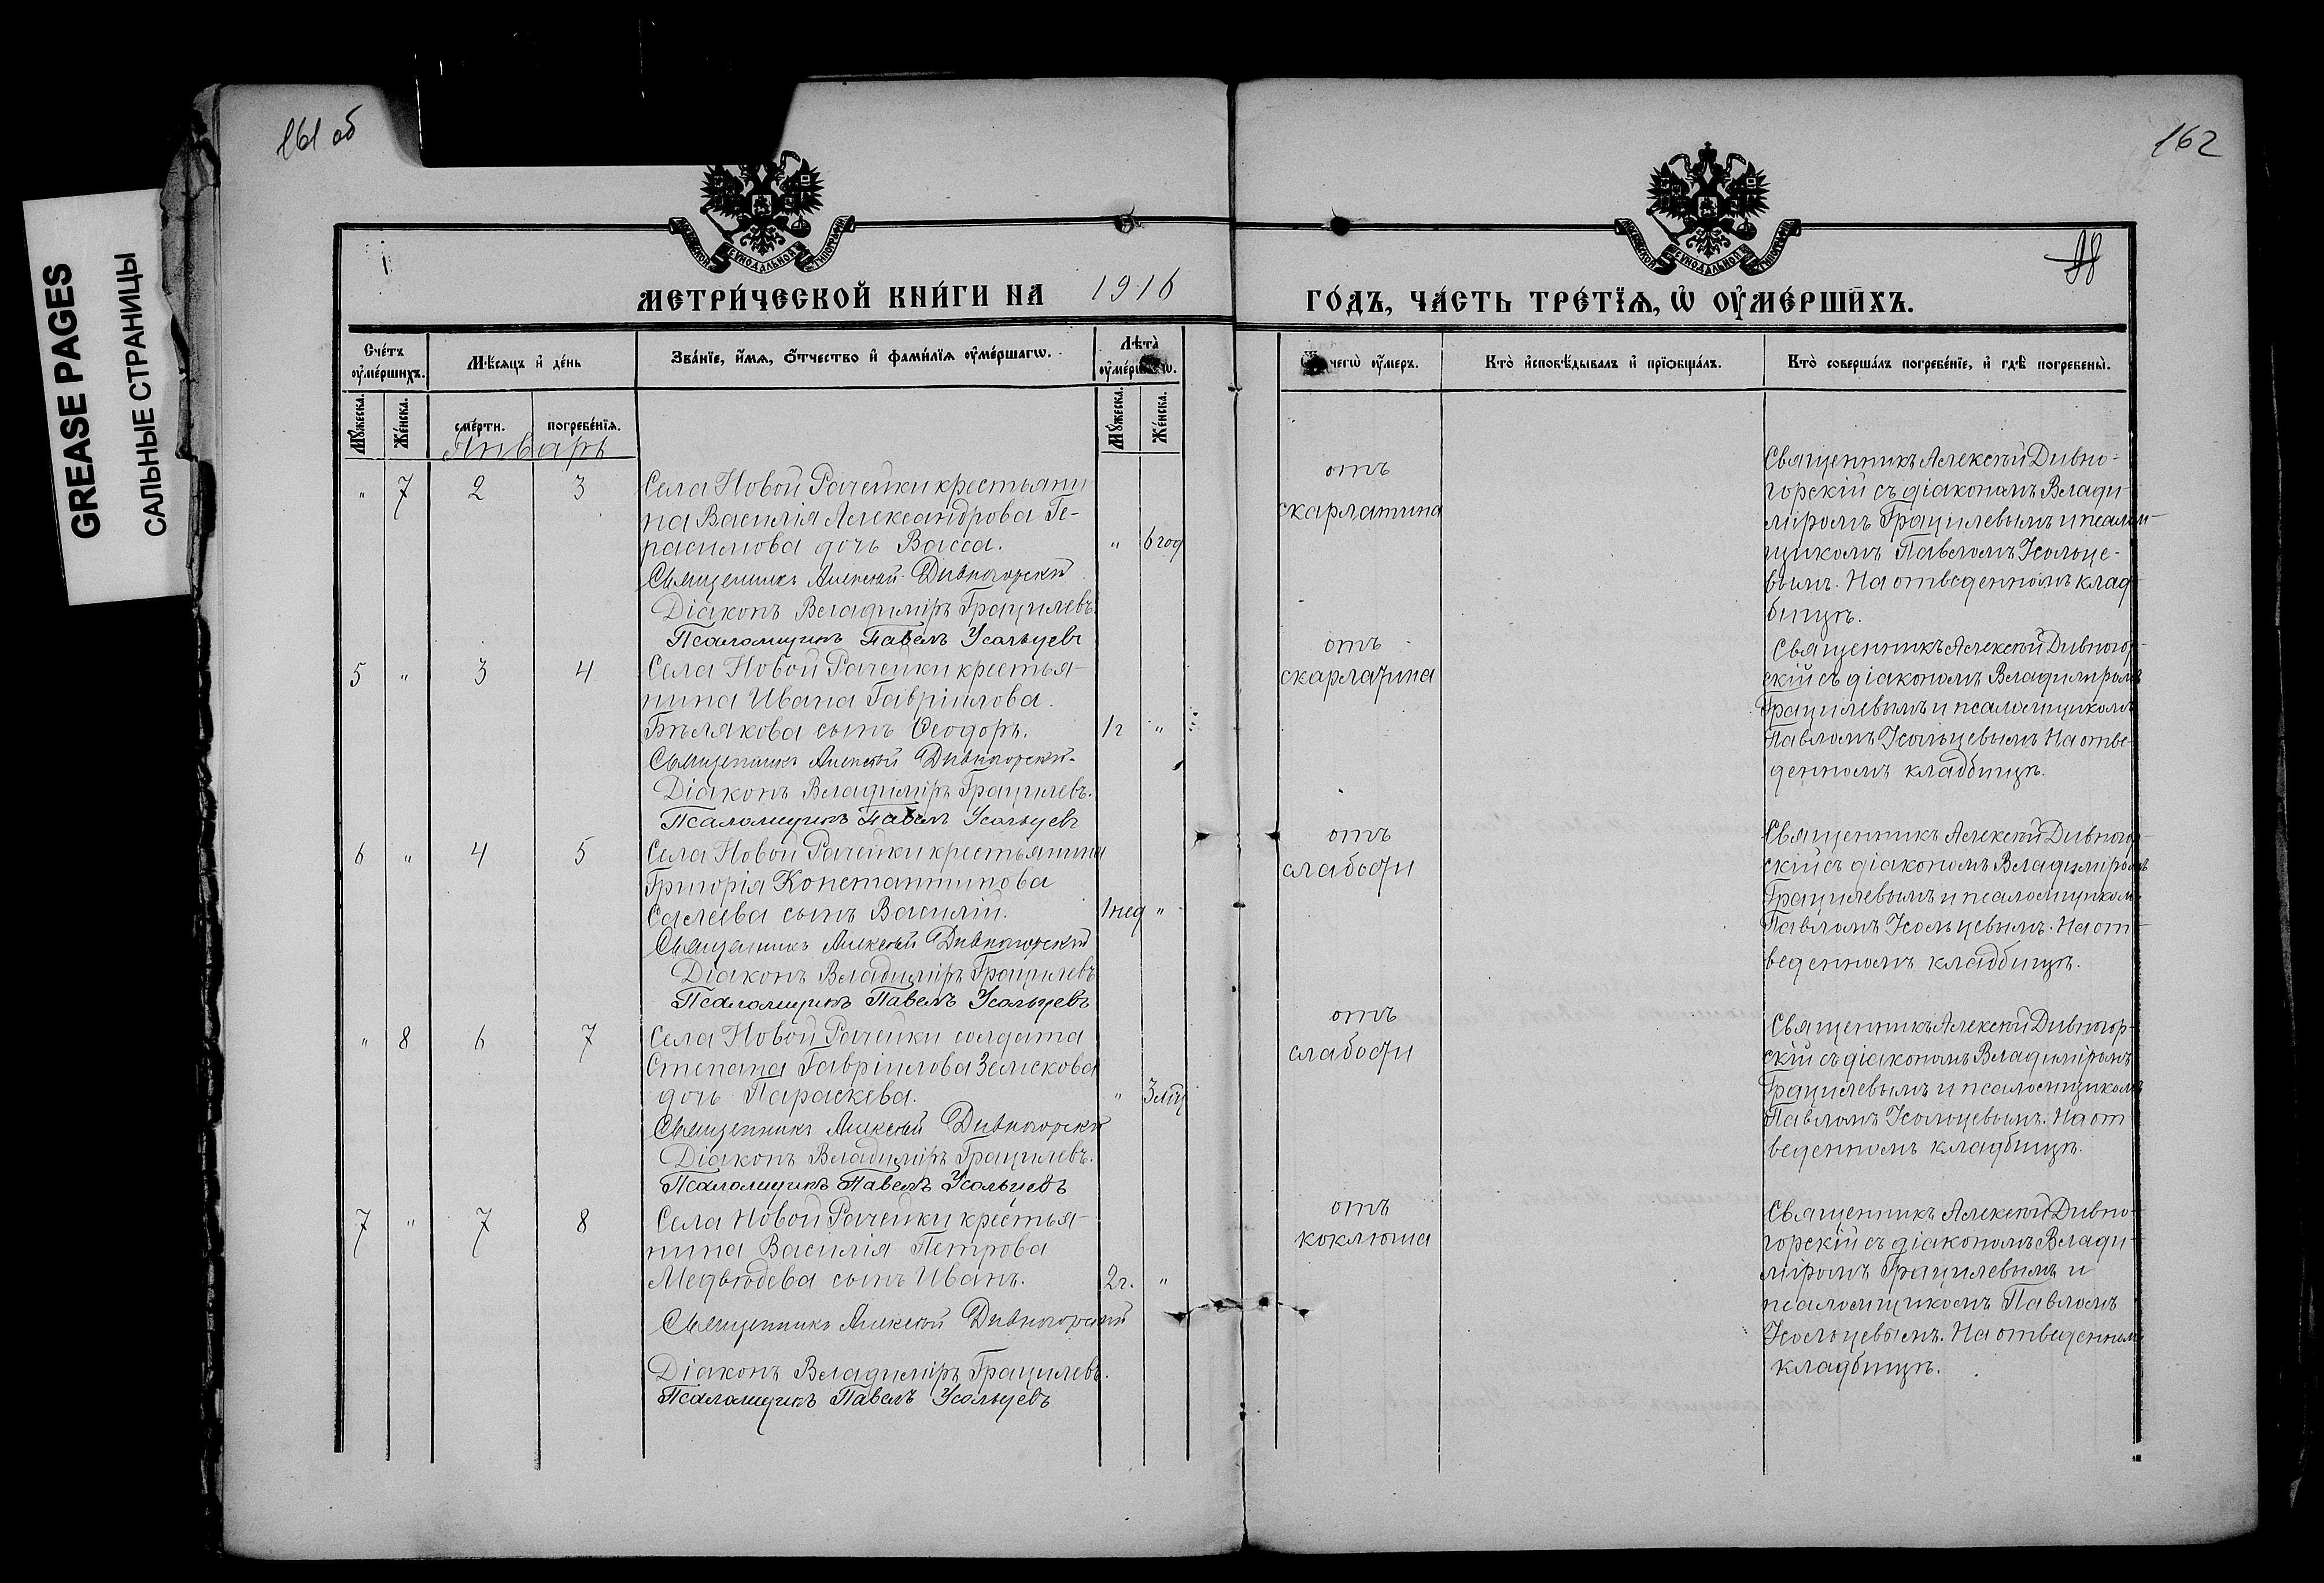 161 об
162
GREASE PAGES
САЛЬНЫЕ СТРАНИЦЫ
МОСКОВСКОЙ СУНОДАЛЬНОЙ ТИПОГРАФІИ
МОСКОВСКОЙ СУНОДАЛЬНОЙ ТИПОГРАФІИ
МЕТРИ́ЧЕСКОЙ КНИ́ГИ НА 1916
ГО́ДЪ, ЧА́СТЬ ТРЕ́ТЇѦ, Ѡ ОУ҆МЕ́РШИХЪ.
Сче́тъ оу҆ме́ршихъ.
Мѣ́сяцъ и҆ де́нь
Зва́нїе, и҆́мя, ѻ҆́тчество и҆ фами́лїя оу҆ме́ршагѡ.
Лѣ́та
Мꙋ́жеска.
Же́нска.
сме́рти.
погребе́нїя.
Мꙋ́жеска.
Же́нска.
чегѡ̀ оу҆́меръ.
Кто̀ и҆сповѣ́дывалъ и҆ прїѡбща́лъ.
Кто̀ соверша́лъ погребе́нїе, и҆ гдѣ̀ погребены̀.
Январь
" 7 2 3 Села Новой Рачейки крестьяни
на Василія Александрова Ге-
расимова дочь Васса. " 6 год
Священникъ Алексѣй Дивногорскій
Діаконъ Владиміръ Грацилевъ.
Псаломщикъ Павелъ Усольцевъ
отъ
скарлатина
Священникъ Алексѣй Дивно-
горскій съ діакономъ Влади
міромъ Грацилевымъ и псалом-
щикомъ Павломъ Усольце-
вымъ. На отведенномъ клад
бищѣ.
5 " 3 4 Села Новой Рачейки крестья-
нина Ивана Гавріилова
Бѣлякова сынъ Ѳеодоръ. 1г "
Священникъ Алексѣй Дивногорскій.
Діаконъ Владиміръ Грацилевъ.
Псаломщикъ Павелъ Усольцевъ
отъ
скарлатина
Священникъ Алексѣй Дивногор-
скій съ діакономъ Владиміромъ
Грацилевымъ и псаломщикомъ
Павломъ Усольцевымъ На отве-
денномъ кладбищѣ.
6 " 4 5 Села Новой Рачейки крестьянина
Григорія Константинова
сынъ Василій. 1 нед "
Священникъ Алексѣй Дивногорскій
Діаконъ Владиміръ Грацилевъ
Псаломщикъ Павелъ Усольцевъ
отъ
слабости
Священникъ Алексѣй Дивногор-
скій съ діакономъ Владиміромъ
Грацилевымъ и псаломщикомъ
Павломъ Усольцевымъ. На от-
веденномъ кладбищѣ.
" 8 6 7 Села Новой Рачейки солдата
Степана Гавріилова Земскова
дочь Параскева. " 3 мц
Священникъ Алексѣй Дивногорскій
Діаконъ Владиміръ Грацилевъ.
Псаломщикъ Павелъ Усольцевъ
отъ
слабости
Священникъ Алексѣй Дивногор-
скій съ діакономъ Владиміромъ
Грацилевымъ и псаломщикомъ
Павломъ Усольцевымъ. На от-
веденномъ кладбищѣ.
7 " 7 8 Села Новой Рачейки крестья-
нина Василія Петрова
Медвѣдева сынъ Иванъ. 2г. "
Священникъ Алексѣй Дивногорскій
Діаконъ Владиміръ Грацилевъ.
Псаломщикъ Павелъ Усольцевъ
отъ
коклюша
Священникъ Алексѣй Дивно-
горскій съ діакономъ Влади-
міромъ Грацилевымъ и
псаломщикомъ Павломъ
Усольцевымъ. На отведенномъ
кладбищѣ.